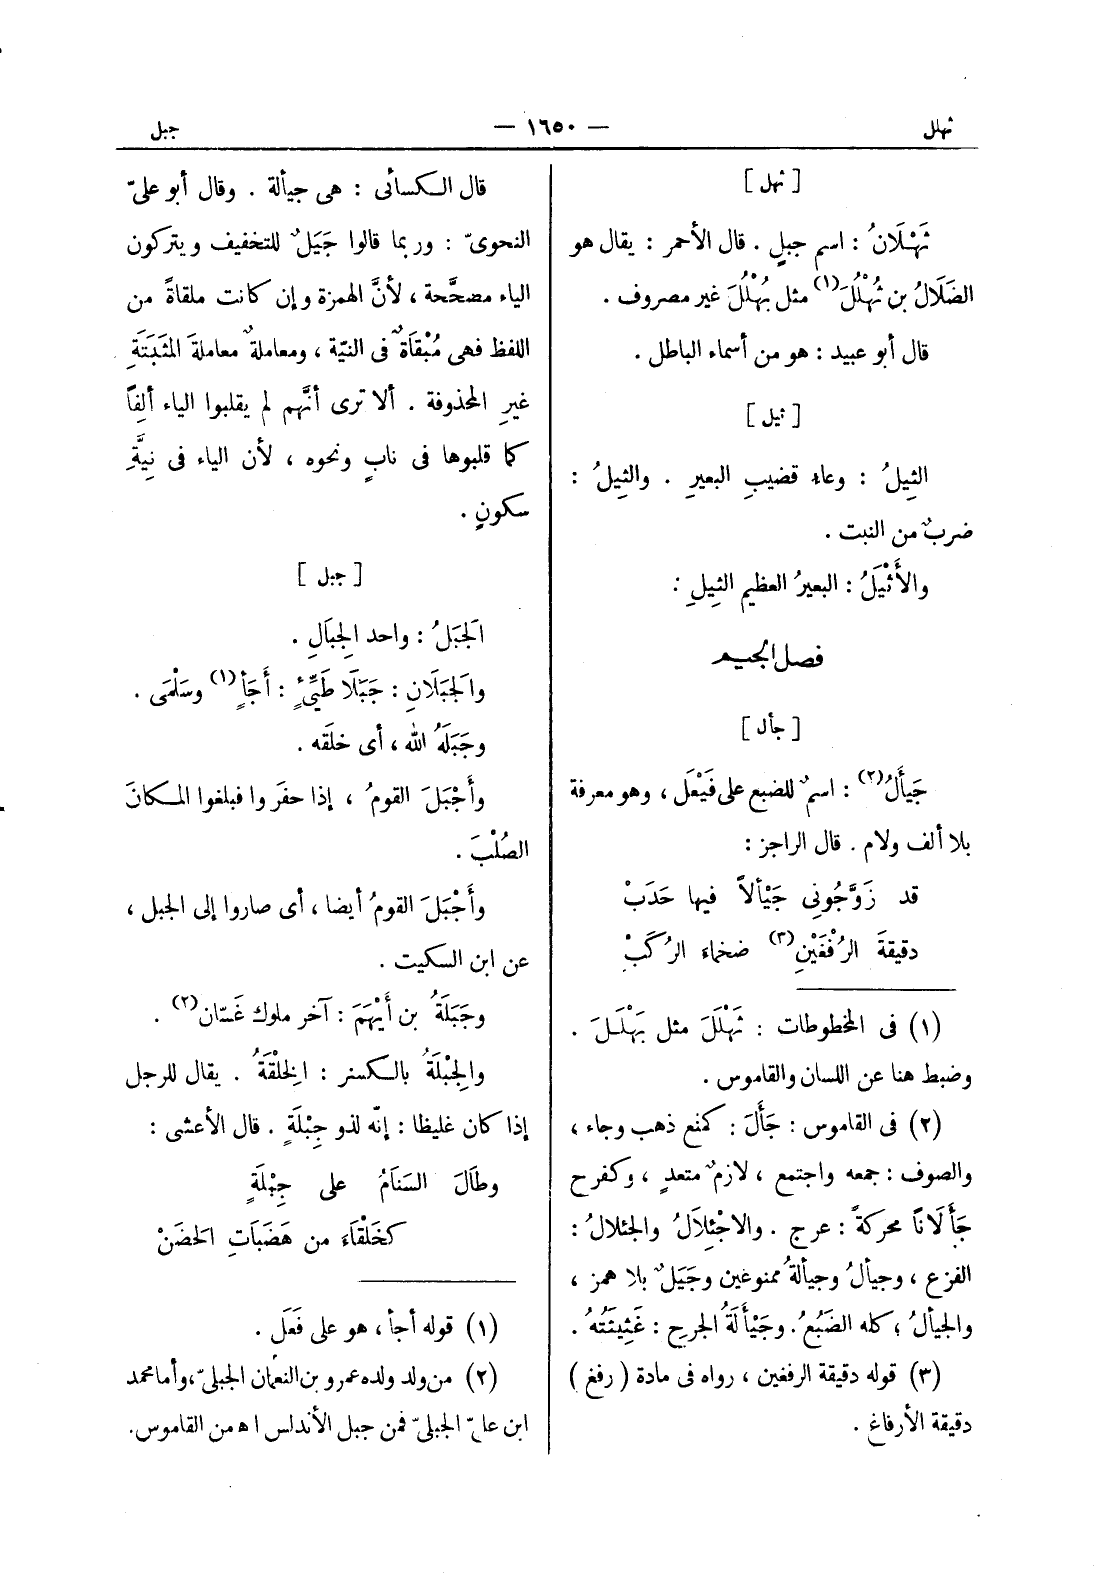 ثهلل — ١٦٥٠ — جبل
[ ثهل ]
ثَهْلَانُ : اسم جبلٍ . قال الأحمر : يقال هو
الضَلَالُ بن ثُهْلُلَ(١) مثل بُهْلُلَ غير مصروف .
قال أبو عبيد : هو من أسماء الباطل .
[ ثيل ]
الثِيلُ : وعاء قضيبِ البعيرِ . والثِيلُ :
ضربٌ من النبت .
والأَثْيَلُ : البعيرُ العظيم الثِيلِ .
فصل الجيم
[ جأل ]
جَيأَلُ(٢) : اسمٌ للضبع على فَيْعَل ، وهو معرفة
بلا ألف ولام . قال الراجز :
قد زَوَّجُونِى جَيْألاً فيها حَدَبْ
دقيقةَ الرُفْغَيْنِ(٣) ضخماء الرُكَبْ
(١) فى المخطوطات : ثَهْلَلَ مثل بَهْلَلَ .
وضبط هنا عن اللسان والقاموس .
(٢) فى القاموس : جَأَلَ : كمنع ذهب وجاء ،
والصوف : جمعه واجتمع ، لازمٌ متعدٍ ، وكفرح
جَأَلَاناً محركةً : عرج . والاجْئِلاَلُ والجئلال :
الفزع ، وجيألُ وجيألةُ ممنوعين وجَيَلٌ بلا همز ،
والجيألُ ؛ كله الضَبُعُ . وجَيْأَلَةُ الجريح : غَثِيثَتُهُ .
(٣) قوله دقيقة الرفغين ، رواه فى مادة ( رفغ )
دقيقة الأرفاغ .
قال الكسائى : هى جيألة . وقال أبو علىّ
النحوىّ : وربما قالوا جَيَلٌ للتخفيف ويتركون
الياء مصحَّحة ، لأنَّ الهمزة وإن كانت ملقاةً من
اللفظ فهى مُبْقَاةٌ فى النيّة ، ومعاملةٌ معاملةَ المثبَتَةِ
غيرِ المحذوفة . ألا ترى أنَّهم لم يقلبوا الياء ألِفاً
كما قلبوها فى نابٍ ونحوه ، لأن الياء فى نِيَّةِ
سكونٍ .
[ جبل ]
الجَبَلُ : واحد الجِبَالِ .
والجَبَلَانِ : جَبَلَا طَيِّئٍ : أَجَأٍ(١) وسَلْمَى .
وجَبَلَهُ الله ، أى خلَقه .
وأَجْبَلَ القومُ ، إذا حفَروا فبلغوا المكانَ
الصُلْبَ .
وأَجْبَلَ القومُ أيضا ، أى صاروا إلى الجبل ،
عن ابن السكيت .
وجَبَلَةُ بن أَيْهَمَ : آخر ملوك غَسّان(٢) .
والجِبْلَةُ بالكسر : الخِلْقَةُ . يقال للرجل
إذا كان غليظا : إنّه لذو جِبْلَةٍ . قال الأعشى :
وطَالَ السَنَامُ على جِبْلَةٍ
كَخَلْقَاءَ من هَضَبَاتِ الحَضَنْ
(١) قوله أجأ ، هو على فَعَلَ .
(٢) من ولد ولده عمرو بن النعمان الجبلىّ ، وأما محمد
ابن علىّ الجبلىّ فمن جبل الأندلس اه من القاموس .